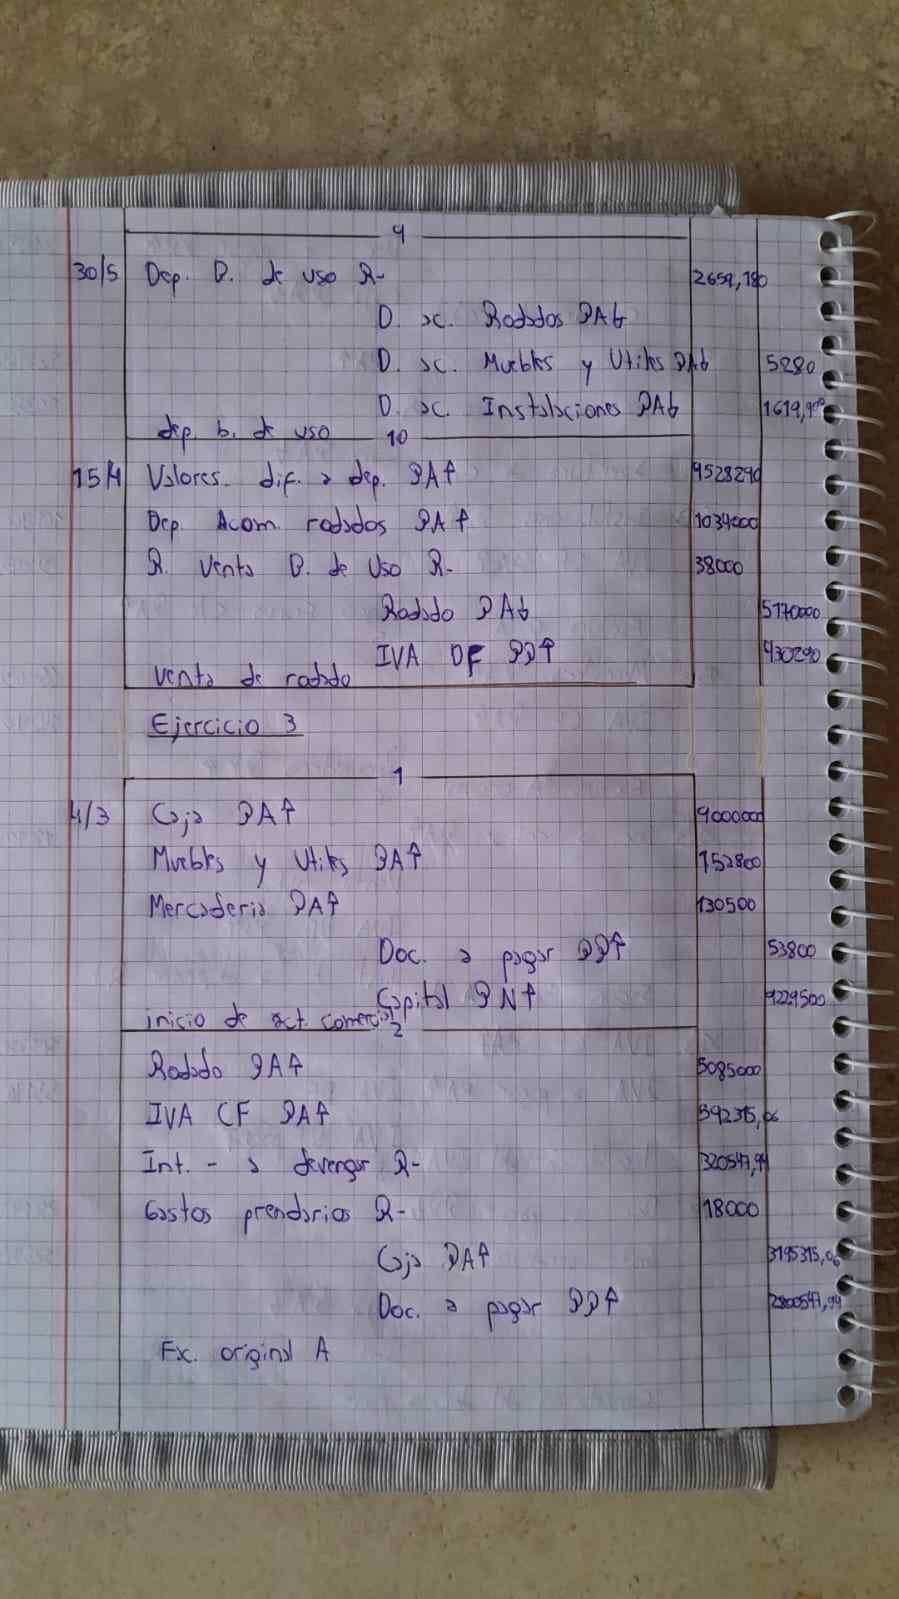 9
30/5 Dep. B. de uso R- 2659,180
D. ac. Rodados PA↓
D. ac. Muebles y Utiles PA↓ 5280
D. ac. Instalaciones PA↓
dep. b. de uso
10
15/4 Valores dif. a dep. PA↑
Dep Acom. rodados PA↑ 1034000
R. Venta B. de Uso R- 38000
Rodado PA↓
IVA DF PP↑ 430290
venta de rodado
Ejercicio 3
1
4/3 Caja PA↑ 9000000
Muebles y Utiles PA↑ 152800
Mercaderia PA↑ 130500
Doc. a pagar PP↑ 53800
Capital PN↑ 9229500
inicio de act. comercial
2
Rodado PA↑ 5085000
IVA CF PA↑ 592315,06
Int. - a devengar R- 320547,94
Gastos prendarios R- 18000
Caja PA↑ 3195315,06
Doc. a pagar PP↑ 2800547,94
Fx. original A